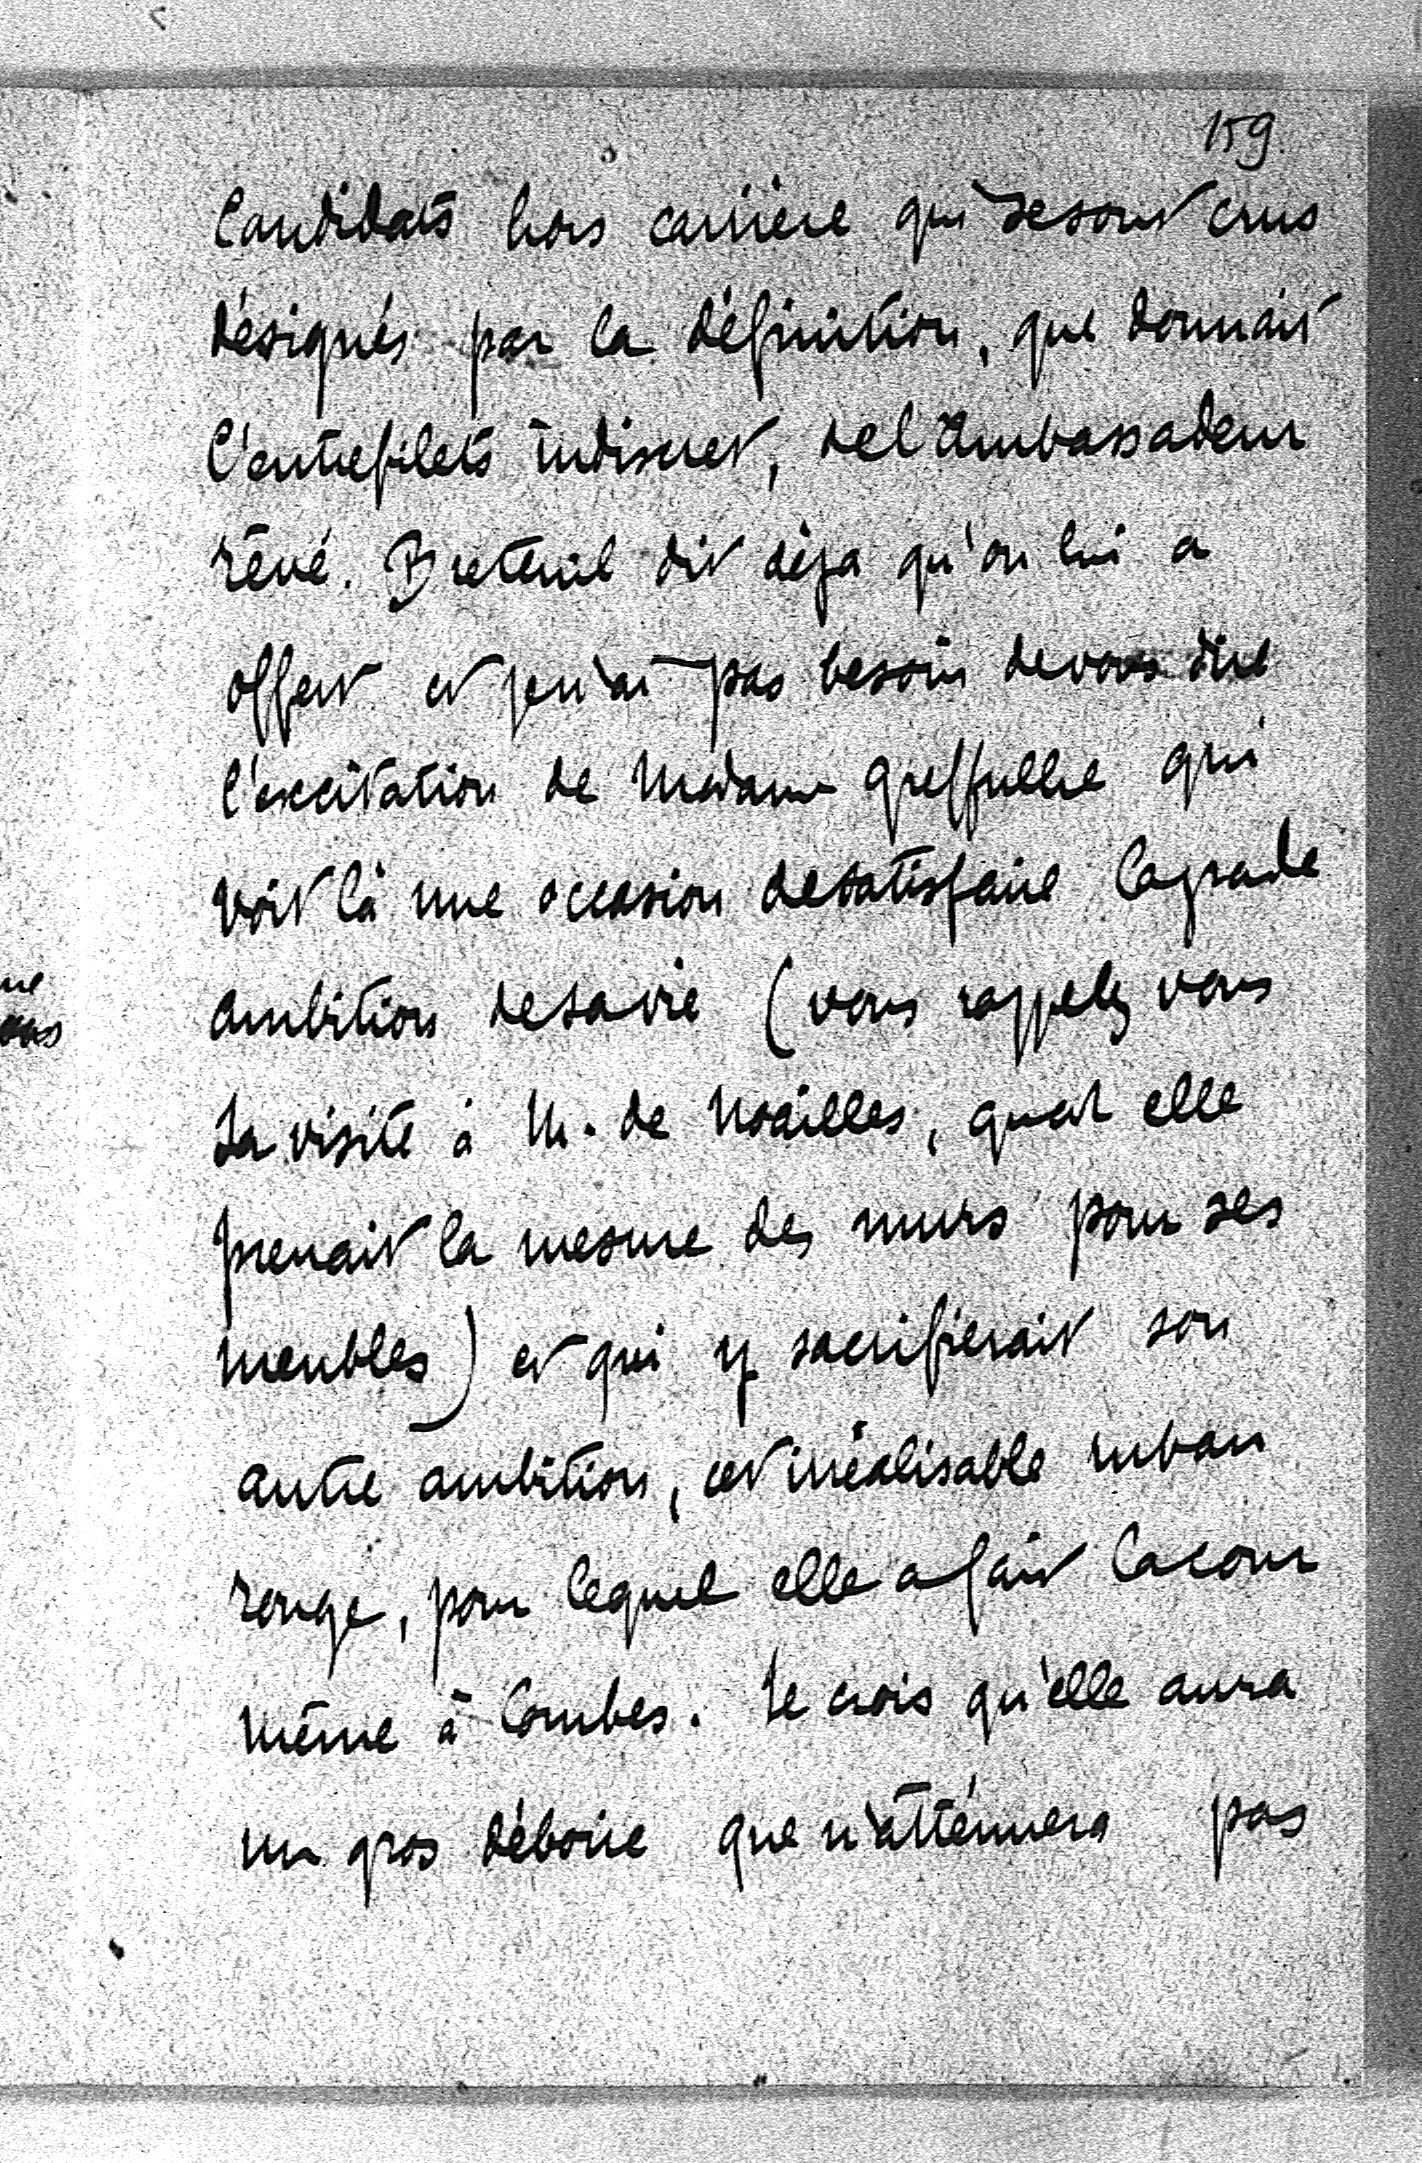 159.
Candidats hors carrière qui se sont crus
désignés par la définition, que donnait
l'entrefilets indiscret, de l'Ambassadeur
rêvé. Breteuil dit déja qu'on lui a
offert et je n'ai pas besoin de vous dire
l'excitation de Madame Greffulhe qui
voit là une occasion de satisfaire la grande
ambition de sa vie (vous rappelez vous
sa visite à M. de Noailles, quant elle
prenait la mesure des murs pour ses
meubles) et qui y sacrifierait son
autre ambition, cet irréalisable ruban
rouge, pour lequel elle a fait la cour
même à Combes. Je crois qu'elle aura
un gros déboire que n'atténuera pas